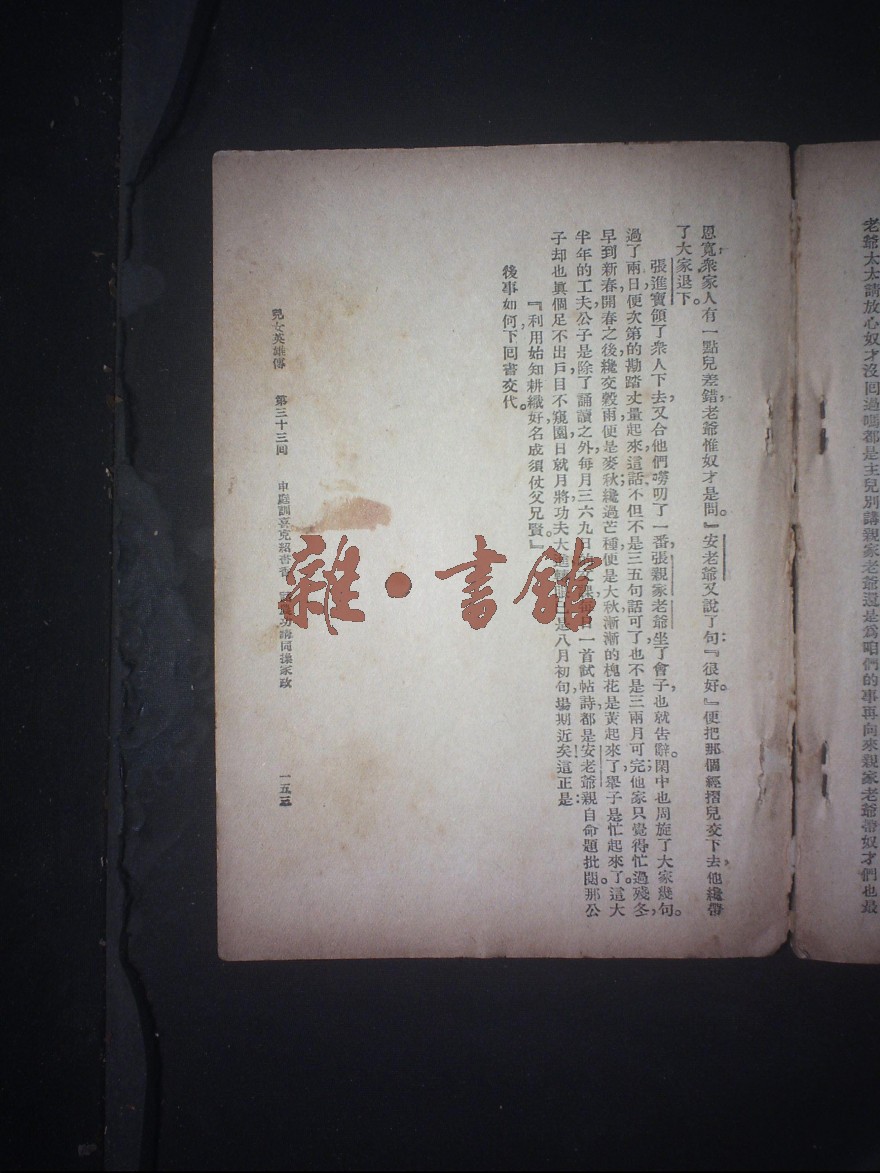 老爺太太請放心奴才沒回過嗎都是主兒別講親家老爺還是爲咱們的事再向來親家老爺帶奴才們也最
恩寬,衆家人有一點兒差錯,老爺惟奴才是問。』安老爺又說了句:『很好。』便把那個經摺兒交下去,他纔帶
了大家退下。
張進寶領了衆人下去,又合他們嘮叨了一番,張親家老爺坐了會子,也就告辭。閑中也周旋了大家幾句。
過了兩日,便次第的勘踏丈量起來,這話不但不是三五句話可了,也不是三兩月可完,他家只覺得忙過殘冬,
早到新春,開春之後,纔交穀雨,便是麥秋;纔過芒種,便是大秋,漸漸的槐花是黃起來了,舉子是忙起來了。這大
半年的工夫,公子是除了誦讀之外,每月三六九日一首試帖詩,都是安老爺親自命題批閱。那公
子却也眞個足不出戶,目不窺園,日就月將,功夫大是八月初旬,場期近矣!這正是:
『利用始知耕織好,名成須仗父兄賢。』
後事如何,下回書交代。
兒女英雄傳 第三十三回 申庭訓喜克紹書香 功請同操家政 一五三
雜·書館